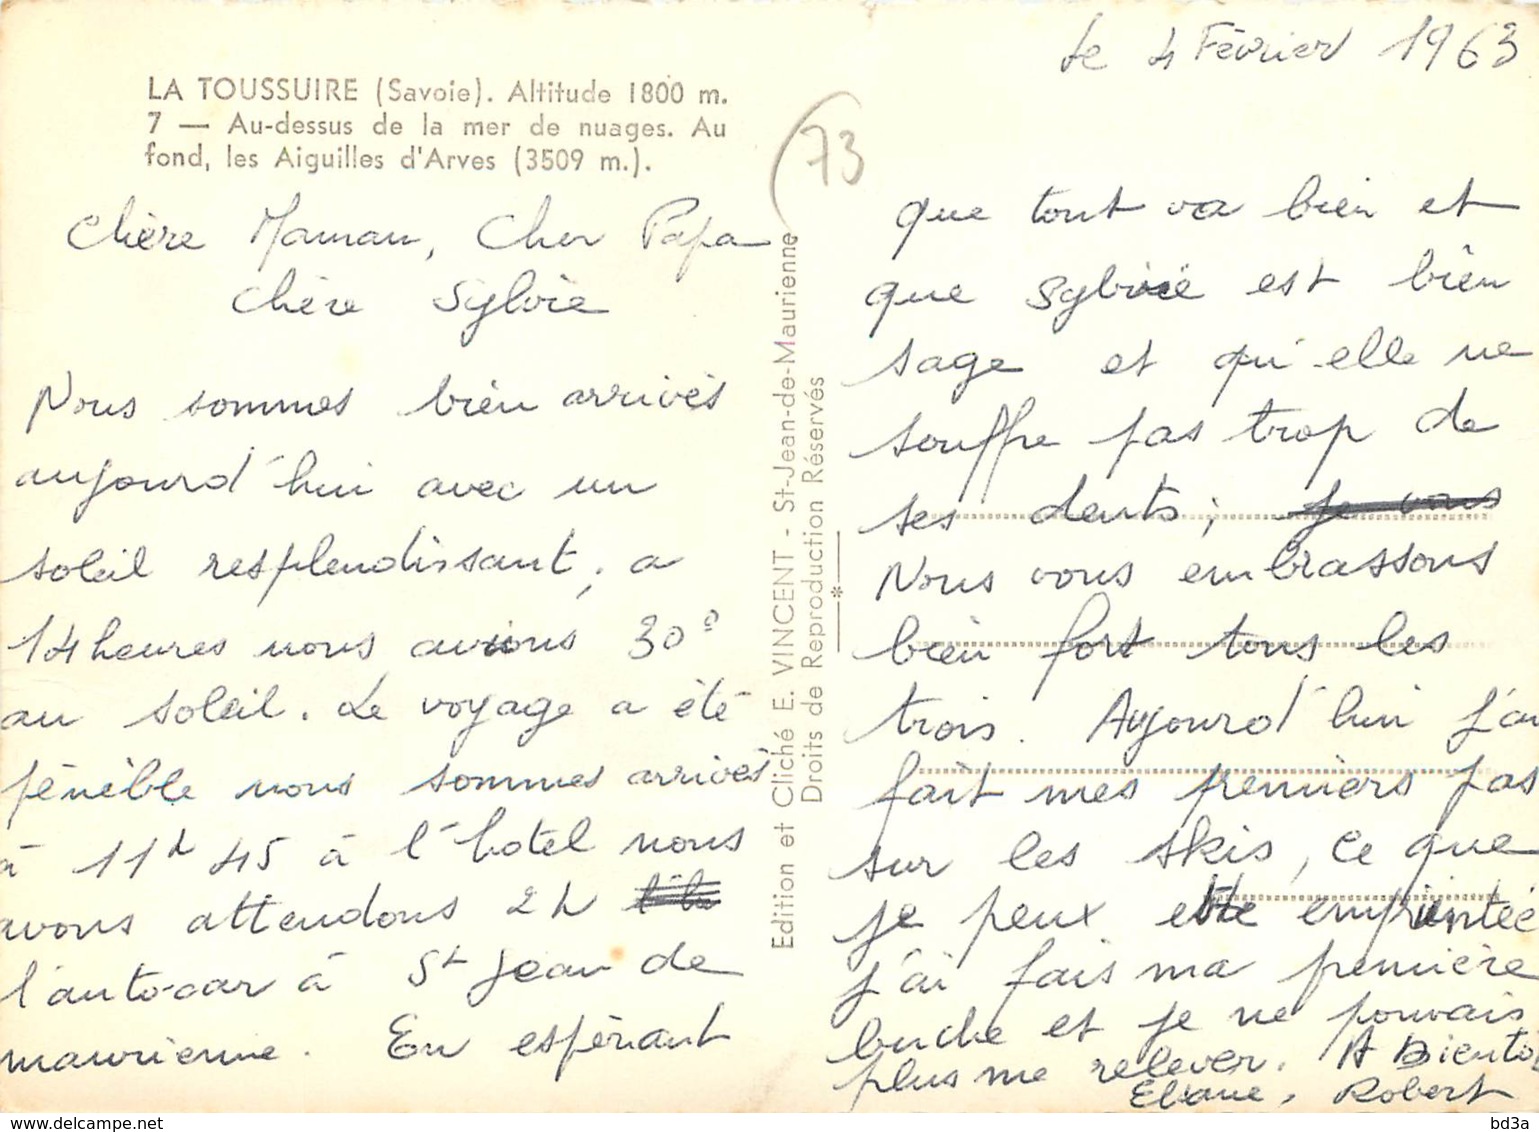 le 4 Février 1963
LA TOUSSUIRE (Savoie). Altitude 1800 m.
7 — Au-dessus de la mer de nuages. Au
fond, les Aiguilles d'Arves (3509 m.).
73
Chère Maman, Cher Papa
chère Sylvie
Nous sommes bien arrivés
aujourd'hui avec un
soleil resplendissant, a
14 heures nous avions 30°
au soleil. Le voyage a été
pénible nous sommes arrivés
à 11h 45 à l'hotel nous
avons attendons 2h
l'auto-car à St Jean de
maurienne. En espérant
Edition et Cliché E. VINCENT - St-Jean-de-Maurienne
Droits de Reproduction Réservés
que tout va bien et
que Sylvie est bien
sage et qu'elle ne
souffre pas trop de
ses dents; je vous
Nous vous embrassons
bien fort tous les
trois. Aujourd'hui j'ai
fait mes premiers pas
sur les skis, ce que
je peux être empruntée
j'ai fais ma première
buche et je ne pouvais
plus me relever. A Bientôt
Eliane, Robert
delcampe.net
bd3a